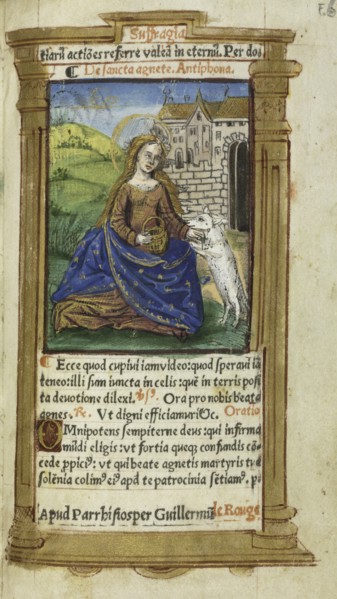 F.6
Suffragia
tiarū actiōes referre valeā in eternū. Per dom
☾ De sancta agnete. Antiphona.
☾ Ecce quod cupivi iam video: quod speravi iā
teneo: illi sum iuncta in celis: quē in terris posi
ta devotione dilexi. ℣. Ora pro nobis beata
agnes. ℟. Ut digni efficiamur &c. Oratio
OMnipotens sempiterne deus: qui infirma
mūdi eligis: vt fortia queqꝫ confundis cō
cede ꝓpicīꝰ: vt qui beate agnetis martyris tue
solēnia colimꝰ eiꝰ apd te patrocinia sētiamꝰ. p̄
Apud Parrhisios per Guillermū le Rouge